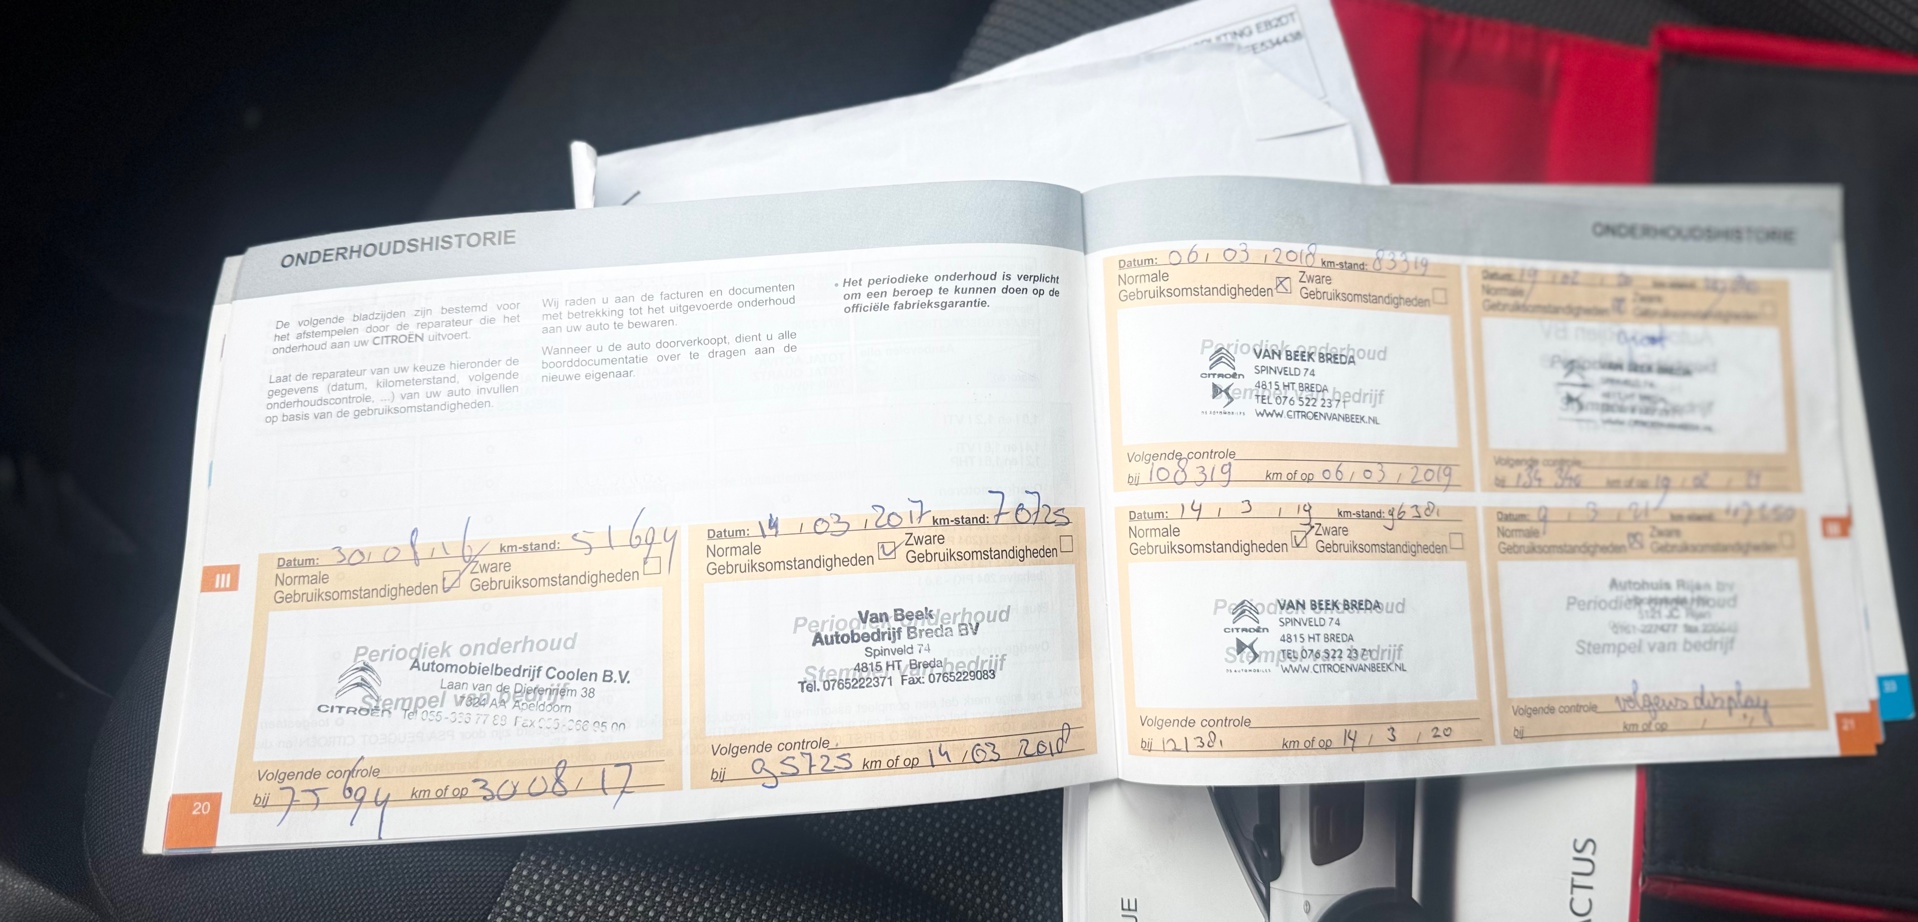 UITING EB2DT
E534438
ONDERHOUDSHISTORIE
De volgende bladzijden zijn bestemd voor
het afstempelen door de reparateur die het
onderhoud aan uw CITROËN uitvoert.
Laat de reparateur van uw keuze hieronder de
gegevens (datum, kilometerstand, volgende
onderhoudscontrole, ...) van uw auto invullen
op basis van de gebruiksomstandigheden.
Wij raden u aan de facturen en documenten
met betrekking tot het uitgevoerde onderhoud
aan uw auto te bewaren.
Wanneer u de auto doorverkoopt, dient u alle
boorddocumentatie over te dragen aan de
nieuwe eigenaar.
• Het periodieke onderhoud is verplicht
om een beroep te kunnen doen op de
officiële fabrieksgarantie.
Datum: 30, 08, 16 km-stand: 51694
Normale Zware
Gebruiksomstandigheden Gebruiksomstandigheden
Periodiek onderhoud
Automobielbedrijf Coolen B.V.
Laan van de Dierenriem 38
Stempel van bedrijf
7324 AA Apeldoorn
CITROËN
Volgende controle
bij 75694 km of op 30 08, 17
Datum: 14, 03, 2017 km-stand: 70725
Normale Zware
Gebruiksomstandigheden Gebruiksomstandigheden
Periodiek onderhoud
Van Beek
Autobedrijf Breda BV
Spinveld 74
Stempel van bedrijf
4815 HT Breda
Tel. 0765222371 Fax: 0765229083
Volgende controle
bij 95725 km of op 14, 03 2018
III
20
ONDERHOUDSHISTORIE
Datum: 06, 03, 2018 km-stand: 83319
Normale Zware
Gebruiksomstandigheden Gebruiksomstandigheden
Periodiek onderhoud
VAN BEEK BREDA
SPINVELD 74
CITROËN
4815 HT BREDA
Stempel van bedrijf
TEL 076 522 2371
DS AUTOMOBILES
WWW.CITROENVANBEEK.NL
Volgende controle
bij 108319 km of op 06, 03, 2019
Datum: 19
Normale Zware
Gebruiksomstandigheden Gebruiksomstandigheden
Periodiek onderhoud
VAN BEEK BREDA
Stempel van bedrijf
Volgende controle
bij km of op 19
Datum: 14, 3, 19 km-stand: 9638
Normale Zware
Gebruiksomstandigheden Gebruiksomstandigheden
Periodiek onderhoud
VAN BEEK BREDA
SPINVELD 74
CITROËN
4815 HT BREDA
Stempel van bedrijf
TEL 076 522 2371
DS AUTOMOBILES
WWW.CITROENVANBEEK.NL
Volgende controle
bij 12138 km of op 14, 3, 20
Datum: 9, 3, 21 km-stand:
Normale Zware
Gebruiksomstandigheden Gebruiksomstandigheden
Autohuis Rijen bv
Periodiek onderhoud
Stempel van bedrijf
Volgende controle volgens display
bij km of op
21
33
CACTUS